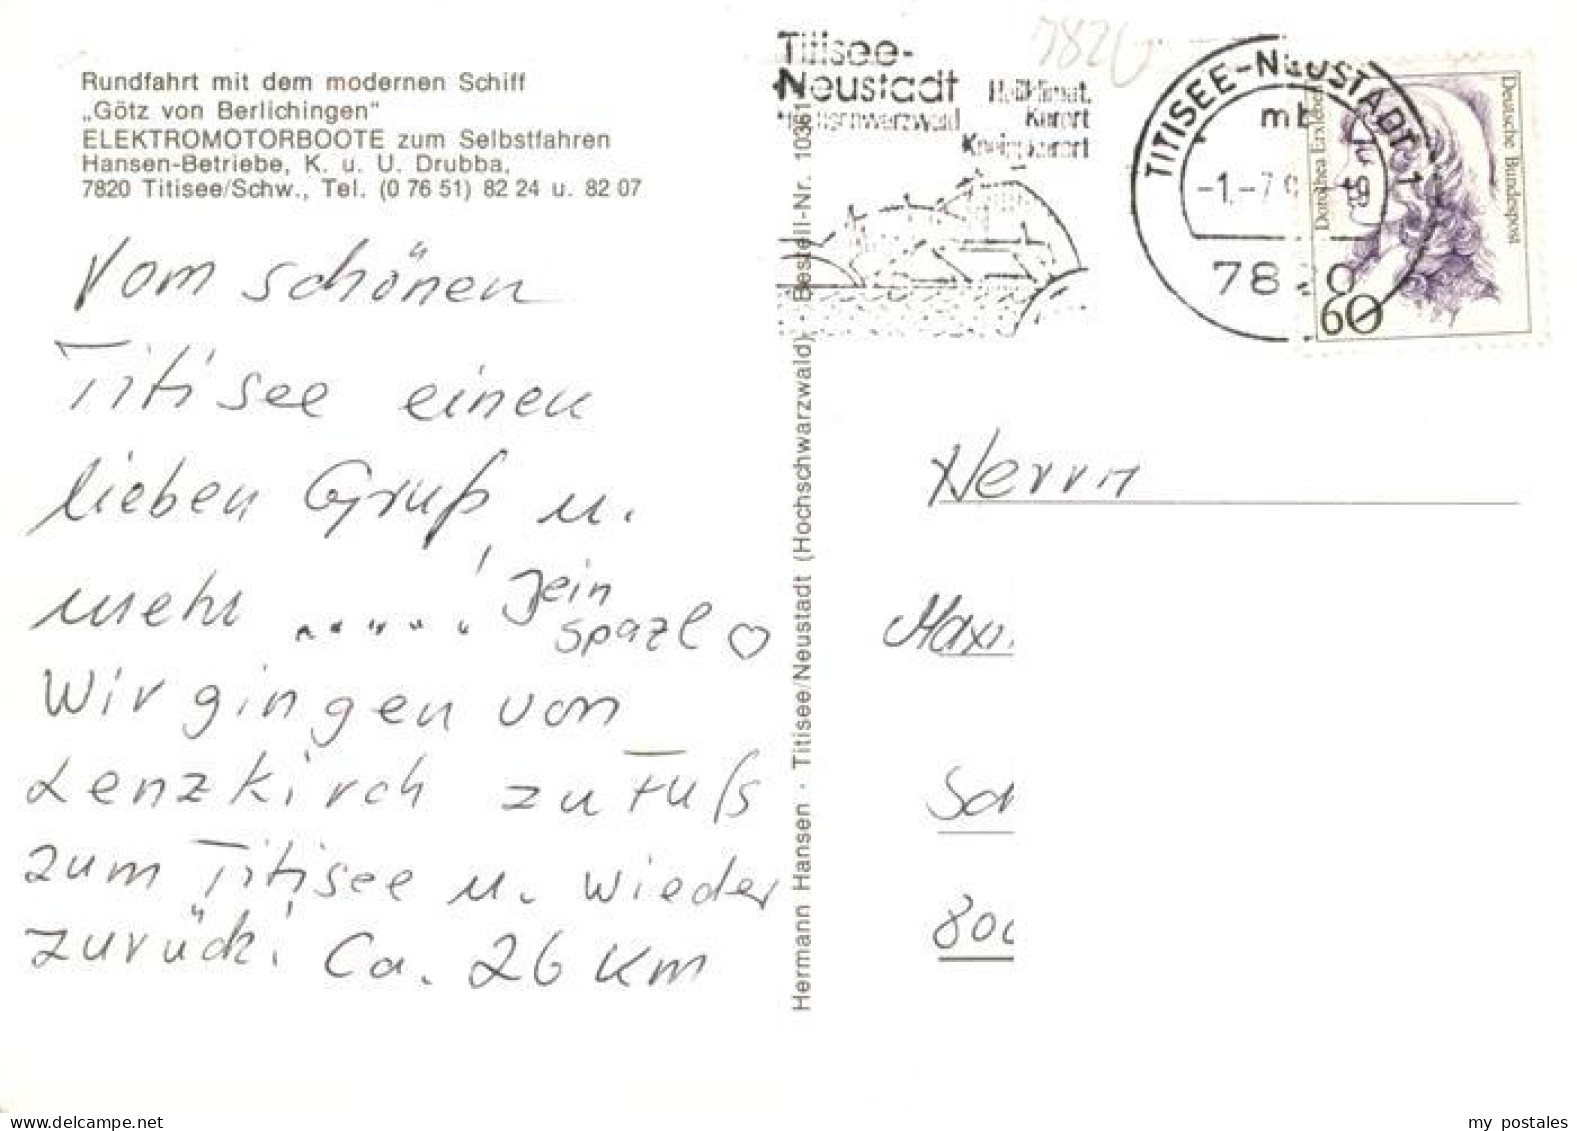 Rundfahrt mit dem modernen Schiff
„Götz von Berlichingen"
ELEKTROMOTORBOOTE zum Selbstfahren
Hansen-Betriebe, K. u. U. Drubba,
7820 Titisee/Schw., Tel. (0 76 51) 82 24 u. 82 07
Vom schönen
Titisee einen
lieben Gruß u.
mehr .....! Dein
Spazl ♡
Wir gingen von
Lenzkirch zu Fuß
zum Titisee u. wieder
zurück! Ca. 26 Km
Hermann Hansen · Titisee/Neustadt (Hochschwarzwald) · Bestell-Nr. 10361
7820
Titisee-
Neustadt
Hochschwarzwald
Heilklimat.
Kurort
Kneippkurort
TITISEE-NEUSTADT 1
mb
-1.-7.9
-19
7820
Deutsche Bundespost
Dorothea Erxleben
60
Herrn
Maxi
Sch
800
my postales
www.delcampe.net